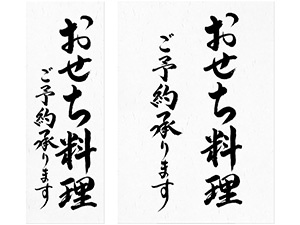 おせち料理
ご予約承ります
おせち料理
ご予約承ります